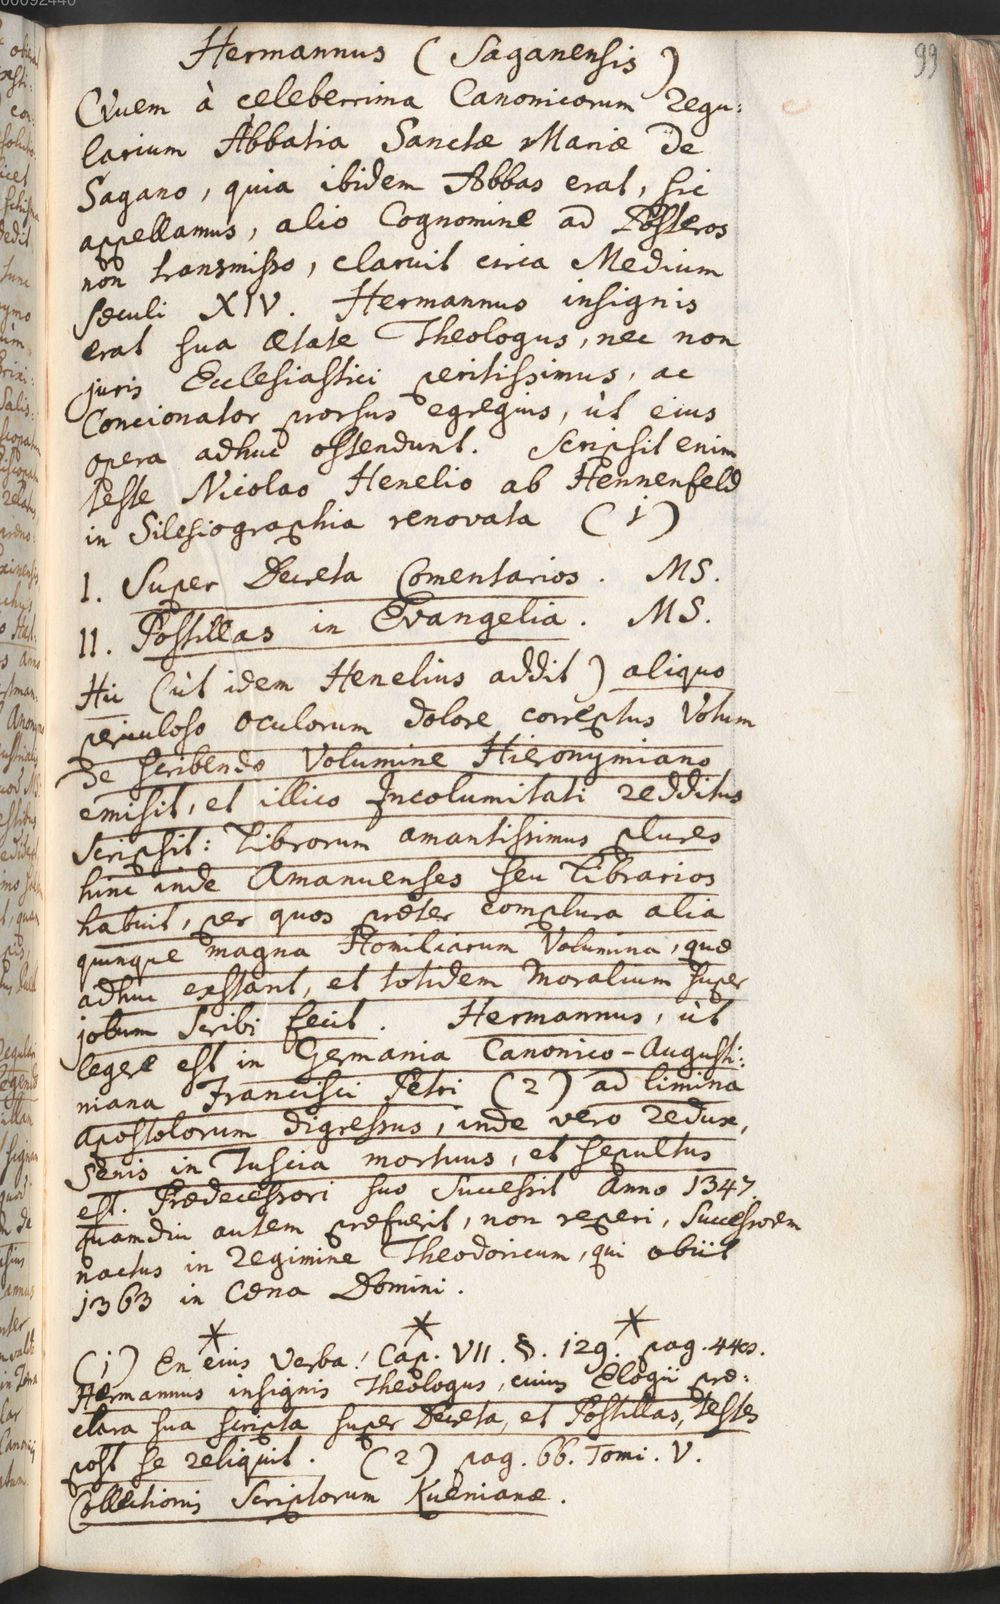 99
Hermannus (Saganensis)
Quem à celeberrima Canonicorum Regu:
larium Abbatia Sanctæ Mariæ de
Sagano, quia ibidem Abbas erat, sic
appellamus, alio Cognomine ad Posteros
non transmisso, claruit circa Medium
sæculi XIV. Hermannus insignis
erat sua ætate Theologus, nec non
juris Ecclesiastici peritissimus, ac
Concionator prorsus egregius, ùt eius
opera adhuc ostendunt. Scripsit enim
teste Nicolao Henelio ab Hennenfeld
in Silesiographia renovata (1)
I. Super Decreta Comentarios. MS.
II. Postillas in Evangelia. MS.
Hic (ùt idem Henelius addit) aliquo
periculoso oculorum dolore correptus Votum
de scribendo Volumine Hieronymiano
emisit, et illico Incolumitati redditus
scripsit: Librorum amantissimus plures
hinc inde Amanuenses seu Librarios
habuit, per quos præter complura alia
quinque magna Homiliarum Volumina, quæ
adhuc exstant, et totidem Moralium super
jobum scribi fecit. Hermannus, ùt
legere est in Germania Canonico-Augusti:
niana Francisci Petri (2) ad limina
apostolorum digressus, inde vero redux,
Senis in Tuscia mortuus, et sepultus
est. Prædecessori suo successit Anno 1347.
quamdiu autem præfuerit, non reperi, Successorem
nactus in regimine Theodoricum, qui obiit
1363 in Cœna Domini.
* * *
(1) En eius verba! Cap. VII. §. 129. pag. 440.
Hermannus insignis Theologus, cuius Elogii præ:
clara sua scripta super Decreta, et Postillas, testes
post se reliquit. (2) pag. 66. Tomi. V.
Collectionis Scriptorum Kuenianæ.